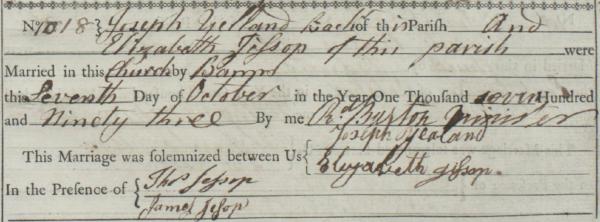 No. 1018 { Joseph Yelland Bach of this Parish And
Elizabeth Jessop of this parish were
Married in this Church by Banns
this Seventh Day of October in the Year One Thousand seven Hundred
and Ninety three By me Rd. Burton Minister
This Marriage was solemnized between Us { Joseph Yealand
Elizabeth Jessop.
In the Presence of { Thos Jessop
James Jesop